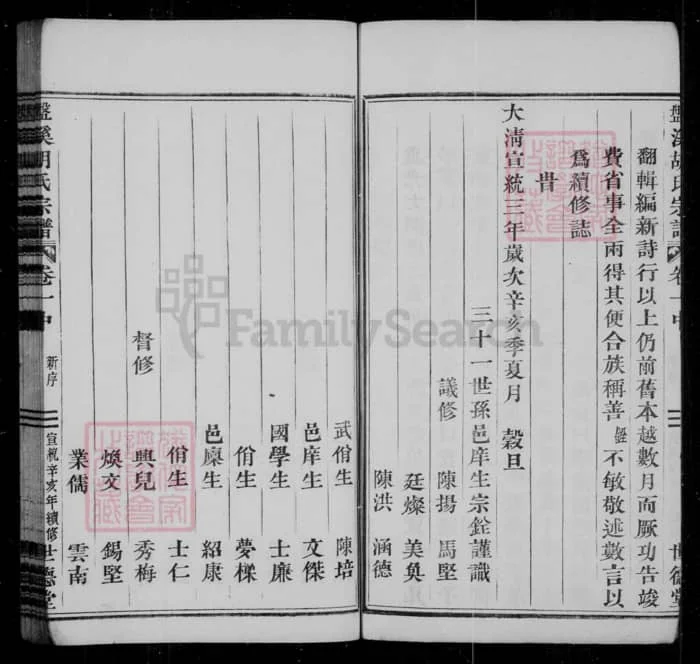 盤溪胡氏宗譜
世德堂
翻輯編新詩行以上仍前舊本越數月而厥功告竣
費省事全兩得其便合族稱善銓不敏敬述數言以
爲續修誌
旹
大清宣統三年歲次辛亥季夏月 穀旦
三十一世孫邑庠生宗銓謹識
議修 陳揚 馬堅
廷燦 美奐
陳洪 涵德
武佾生 陳培
邑庠生 文傑
國學生 士廉
佾生 夢樑
邑廩生 紹康
佾生 士仁
督修 興兒 秀梅
煥文 錫堅
業儒 雲南
盤溪胡氏宗譜 卷一中 新序 宣統辛亥年續修 世德堂
FamilySearch